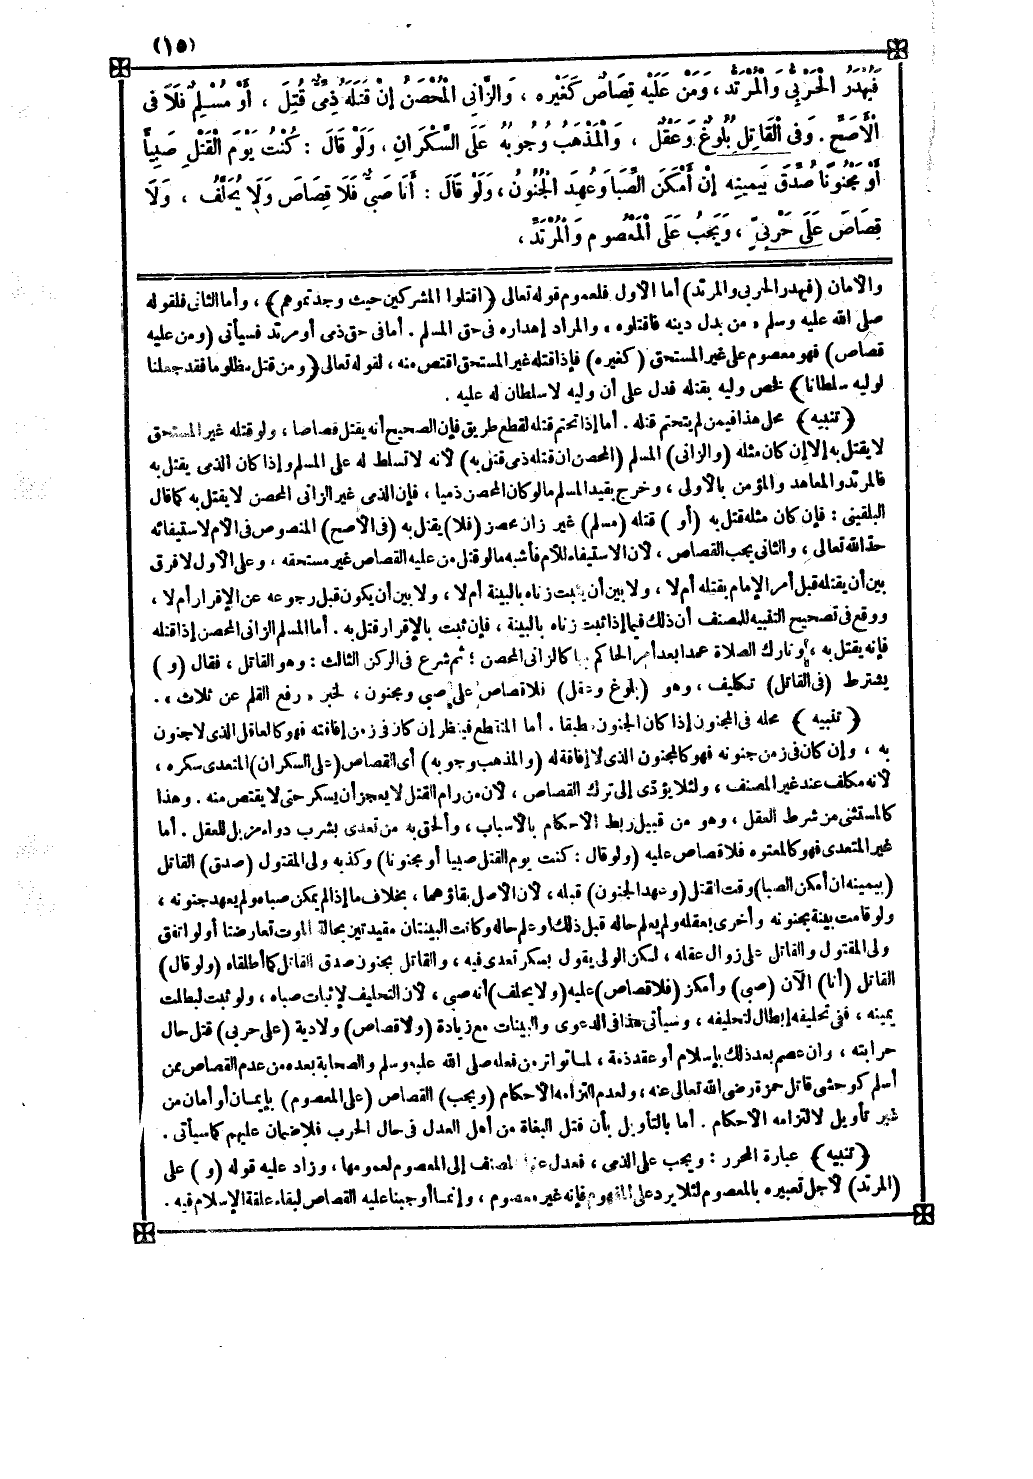 (١٥)
فَيُهْدَرُ الْحَرْبِيُّ وَالْمُرْتَدُّ ، وَمَنْ عَلَيْهِ قِصَاصٌ كَغَيْرِهِ ، وَالزَّانِي الْمُحْصَنُ إِنْ قَتَلَهُ ذِمِّيٌّ قُتِلَ ، أَوْ مُسْلِمٌ فَلَا فِى
الْأَصَحِّ . وَفِى الْقَاتِلِ بُلُوغٌ وَعَقْلٌ ، وَالْمَذْهَبُ وُجُوبُهُ عَلَى السَّكْرَانِ ، وَلَوْ قَالَ : كُنْتُ يَوْمَ الْقَتْلِ صَبِيًّا
أَوْ مَجْنُونًا صُدِّقَ بِيَمِينِهِ إِنْ أَمْكَنَ الصِّبَا وَعُهِدَ الْجُنُونُ ، وَلَوْ قَالَ : أَنَا صَبِيٌّ فَلَا قِصَاصَ وَلَا يُحَلَّفُ ، وَلَا
قِصَاصَ عَلَى حَرْبِيٍّ ، وَيَجِبُ عَلَى الْمَعْصُومِ وَالْمُرْتَدِّ ،
والأمان (فيهدر الحربى والمرتد) أما الأول فلعموم قوله تعالى (اقتلوا المشركين حيث وجدتموهم) ، وأما الثانى فلقوله
صلى الله عليه وسلم « من بدل دينه فاقتلوه » والمراد إهداره فى حق المسلم . أما فى حق ذمى أو مرتد فسيأتى (ومن عليه
قصاص) فهو معصوم على غير المستحق (كغيره) فإذا قتله غير المستحق اقتص منه ، لقوله تعالى (ومن قتل مظلوما فقد جعلنا
لوليه سلطانا) فخص وليه بقتله فدل على أن غير وليه لا سلطان له عليه .
(تنبيه) محل هذا فيمن لم يتحتم قتله . أما إذا تحتم قتله لقطع طريق فإن الصحيح أنه يقتل قصاصا ، ولو قتله غير المستحق
لا يقتل به إلا إن كان مثله (والزانى) المسلم (المحصن ان قتله ذمى قتل به) لأنه لا تسلط له على المسلم وإذا كان الذمى يقتل به
فالمرتد والمعاهد والمؤمن بالأولى ، وخرج بقيد المسلم ما لو كان المحصن ذميا ، فإن الذمى غير الزانى المحصن لا يقتل به كما قال
البلقينى : فإن كان مثله قتل به (أو) قتله (مسلم) غير زان محصن (فلا) يقتل به (فى الأصح) المنصوص فى الأم لاستيفائه
حد الله تعالى ، والثانى يجب القصاص ، لأن الاستيفاء للإمام فأشبه ما لو قتل من عليه القصاص غير مستحقه ، وعلى الأول لا فرق
بين أن يقتله قبل أمر الإمام بقتله أم لا ، ولا بين أن يثبت زناه بالبينة أم لا ، ولا بين أن يكون قبل رجوعه عن الإقرار أم لا ،
ووقع فى تصحيح التنبيه للمصنف أن ذلك فيما إذا ثبت زناه بالبينة ، فإن ثبت بالإقرار قتل به . أما المسلم الزانى المحصن إذا قتله
فإنه يقتل به ، وتارك الصلاة عمدا بعد أمر الحاكم بها كالزانى المحصن ؛ ثم شرع فى الركن الثالث : وهو القاتل ، فقال (و)
يشترط (فى القاتل) تكليف ، وهو (بلوغ وعقل) فلا قصاص على صبى ومجنون ، لخبر « رفع القلم عن ثلاث » .
(تنبيه) محله فى المجنون إذا كان الجنون مطبقا . أما المتقطع فينظر إن كان فى زمن إفاقته فهو كالعاقل الذى لا جنون
به ، وإن كان فى زمن جنونه فهو كالمجنون الذى لا إفاقة له (والمذهب وجوبه) أى القصاص (على السكران) المتعدى سكره ،
لأنه مكلف عند غير المصنف ، ولئلا يؤدى إلى ترك القصاص ، لأن من رام القتل لا يعجز أن يسكر حتى لا يقتص منه . وهذا
كالمستثنى من شرط العقل ، وهو من قبيل ربط الأحكام بالأسباب ، وألحق به من تعدى بشرب دواء مزيل للعقل . أما
غير المتعدى فهو كالمعتوه فلا قصاص عليه (ولو قال : كنت يوم القتل صبيا أو مجنونا) وكذبه ولى المقتول (صدق) القاتل
(بيمينه ان أمكن الصبا) وقت القتل (وعهد الجنون) قبله ، لأن الأصل بقاؤهما ، بخلاف ما إذا لم يمكن صباه ولم يعهد جنونه ،
ولو قامت بينة بجنونه وأخرى بعقله ولم يعلم حاله قبل ذلك أو علم حاله وكانت البينتان مقيدتين بحالة الموت تعارضتا أو لو اتفق
ولى المقتول والقاتل على زوال عقله ، لكن الولى يقول بسكر تعدى فيه ، والقاتل بجنون صدق القاتل كما أطلقاه (ولو قال)
القاتل (أنا) الآن (صبى) وأمكن (فلا قصاص) عليه (ولا يحلف) أنه صبى ، لأن التحليف لإثبات صباه ، ولو ثبت لبطلت
يمينه ، ففى تحليفه إبطال لتحليفه ، وسيأتى هذا فى الدعوى والبينات مع زيادة (ولا قصاص) ولا دية (على حربى) قتل حال
حرابته ، وان عصم بعد ذلك بإسلام أو عقد ذمة ، لما تواتر من فعله صلى الله عليه وسلم والصحابة بعده من عدم القصاص ممن
أسلم كوحشى قاتل حمزة رضى الله تعالى عنه ، ولعدم التزامه الأحكام (ويجب) القصاص (على المعصوم) بإيمان أو أمان من
غير تأويل لالتزامه الأحكام . أما بالتأويل بأن قتل البغاة من أهل العدل فى حال الحرب فلا ضمان عليهم كما سيأتى .
(تنبيه) عبارة المحرر : ويجب على الذمى ، فعدل عنها المصنف إلى المعصوم لعمومها ، وزاد عليه قوله (و) على
(المرتد) لأجل تعبيره بالمعصوم لئلا يرد على المفهوم فإنه غير معصوم ، وإنما أوجبنا عليه القصاص لبقاء علقة الإسلام فيه .